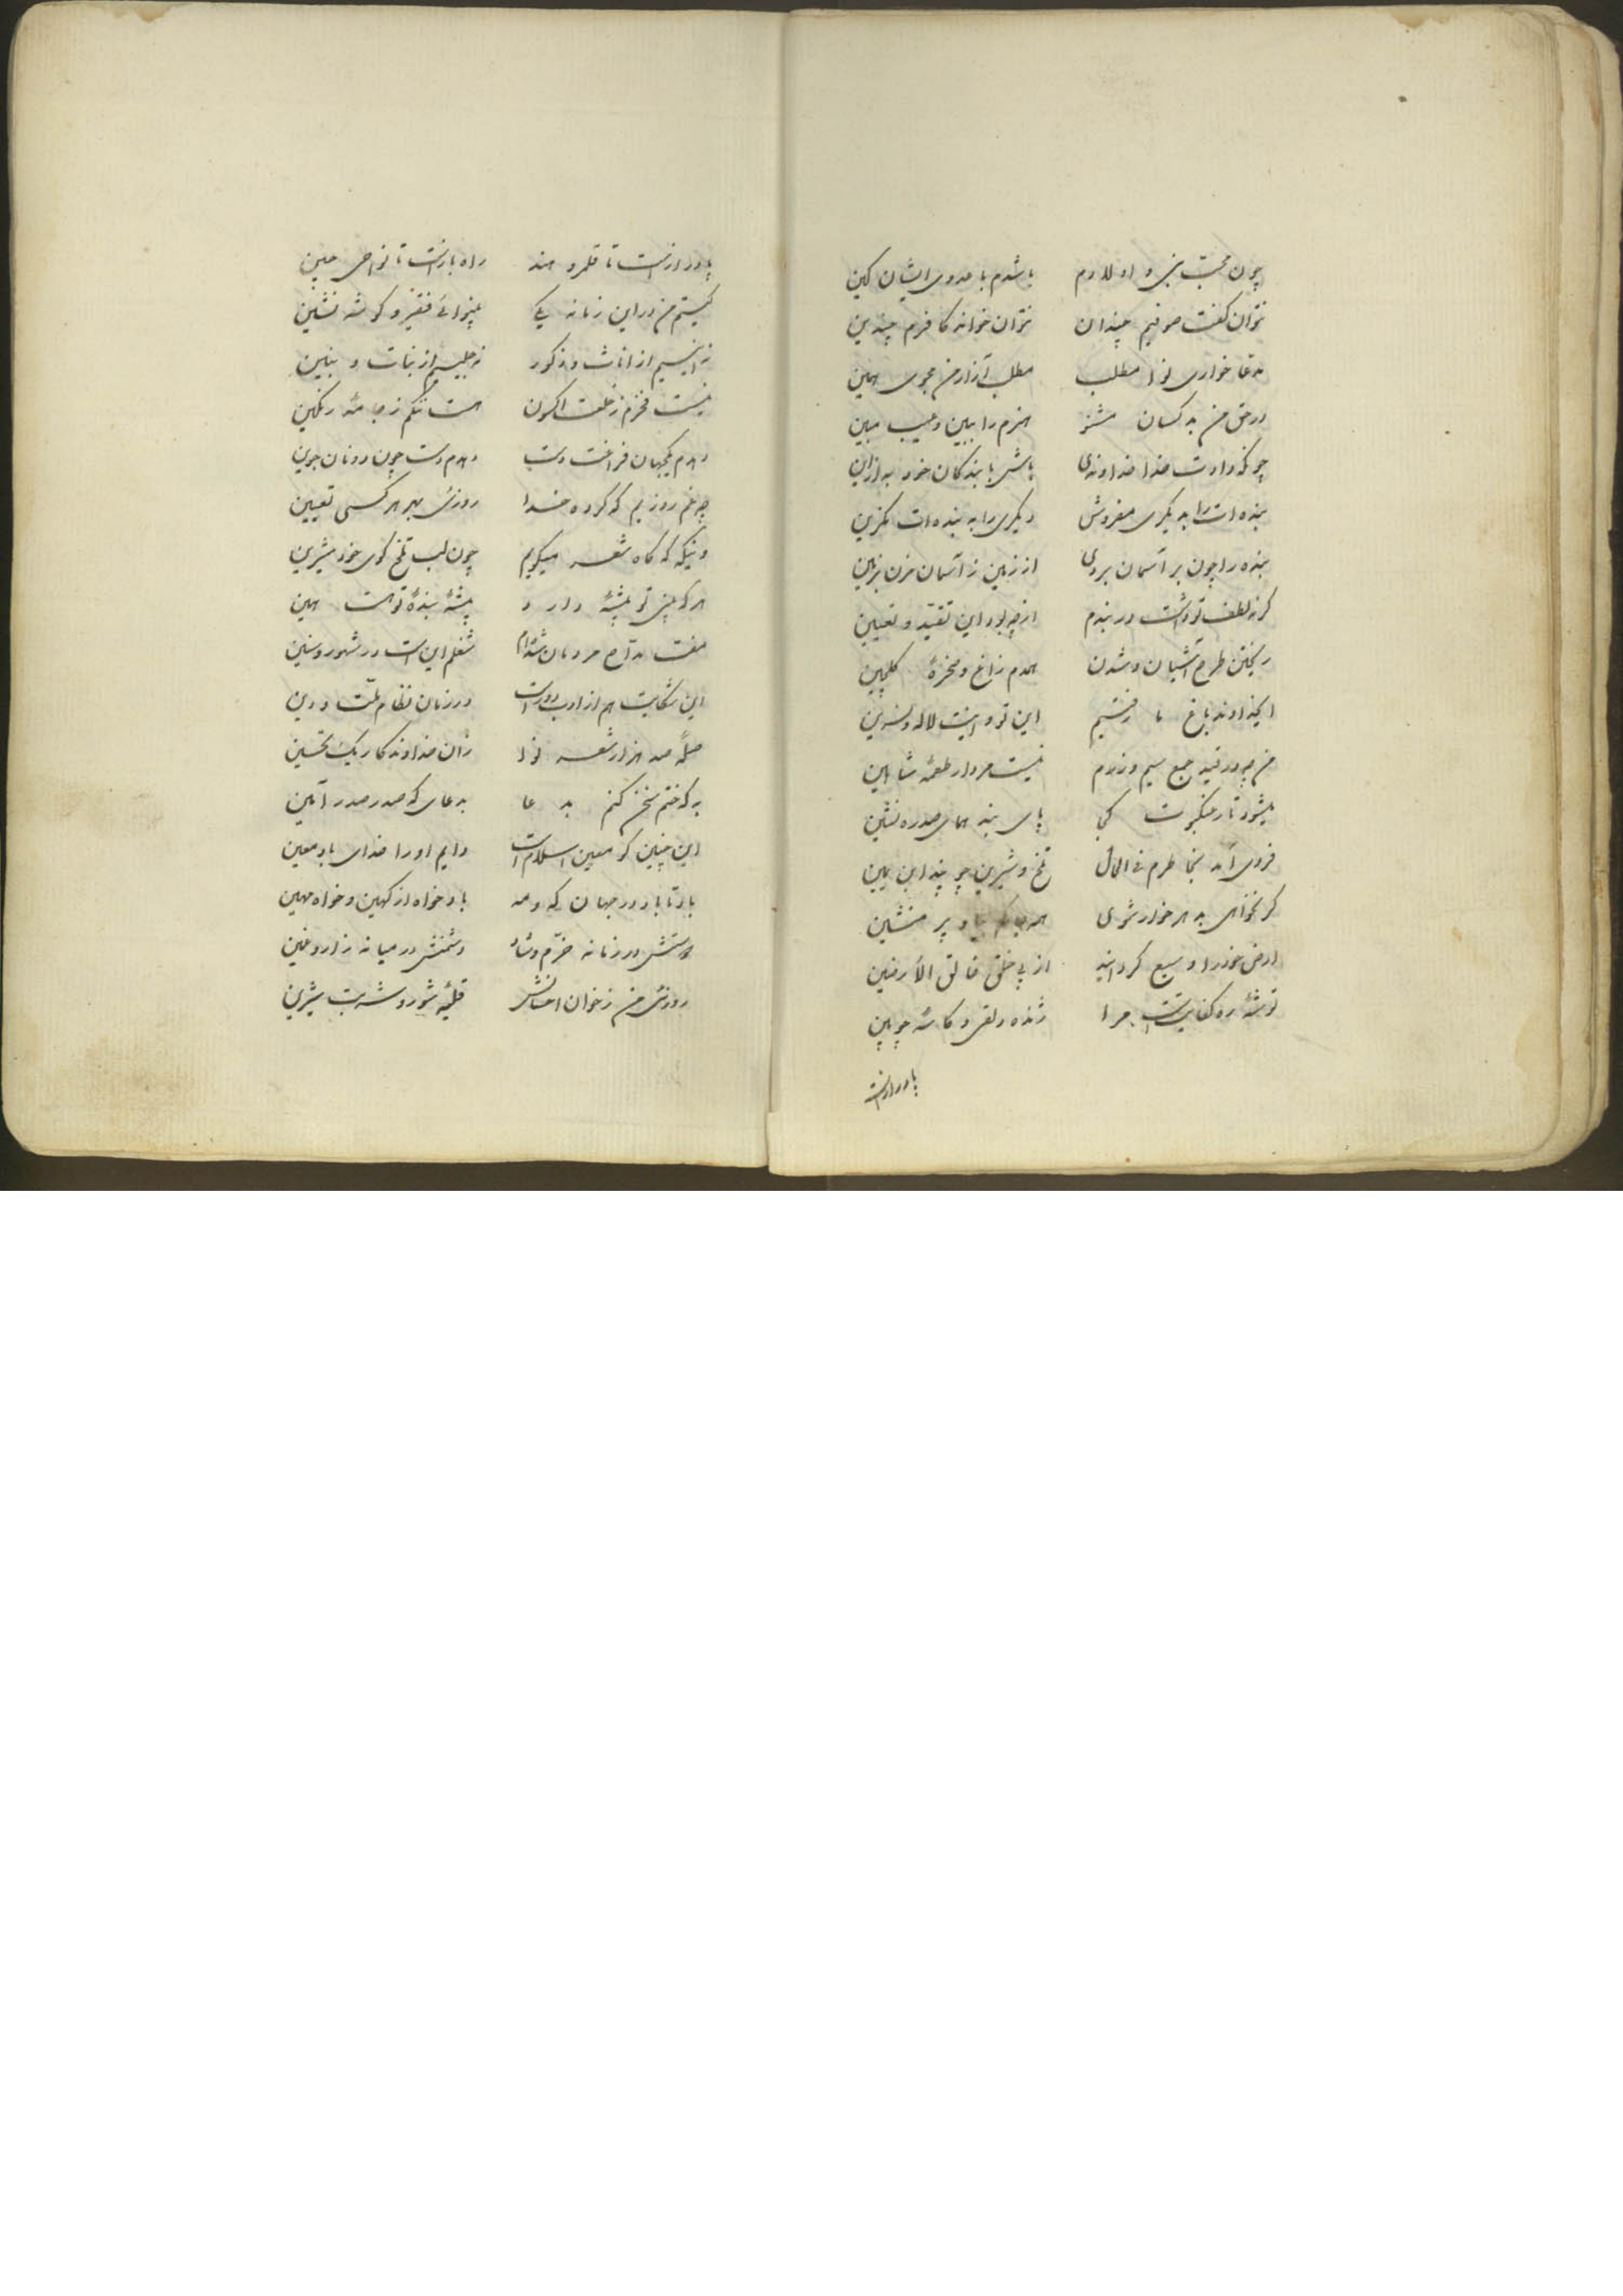 چون محبّ نبی و اولادم باشدم با عدوی ایشان کین
نتوان گفت صوفیم چندان نتوان خواند کافرم چندین
مدعا خواری نوا مطلب مطلب آزار من مجوی همین
در حق من بد کسان مشنو هنرم را ببین و عیب مبین
چونکه دادت خدا خداوندی باش با بندکان خود به ازاین
بنده ات را به دیکری مفروش دیکری را به بنده ات مکزین
بنده را چون بر آسمان بردی از زمین ز آسمان مزن بزمین
کر نه لطف تو داشت در بندم از چه بود این تقیّد و تعیین
ریختن طرح آشیان و شدن همدم زاغ و سخرهٔ کلچین
ایخداوند باغ ما رفتیم این تو و اینت لاله و نسرین
من چه در قید جمع سیم و زرم نیست مردار طعمهٔ شاهین
میشود تار عنکبوت کجا پای بند همای سدره نشین
فردی آمد بخاطرم فی الحال تلخ و شیرین چو پند ابن یمین
کر نخواهی به هر خوار شوی منشین
ارض خود را وسیع کردانید از پی خلق خالق الأرضین
توشهٔ ره کفایتست مرا ژنده دلقی و کاسهٔ چوبین
پا درازست
پا درازست تا قلمرو هند راه بازست تا نواحی چین
کیستم من در این زمانه یکی بینوائی فقیر و کوشه نشین
نه انیسم از اناث و ذکور نه جلیسم از بنات و بنین
نیست فخرم ز خلعت اکنون هست ننکم ز جامهٔ رنکین
دهدم یکجهان فراغت دست دهدم دست چون دو نان جوین
چه غم روزیم که کرده خدا روزی بهر هر کسی تعیین
وینکه که کاه شعر میکویم چون لب تلخ کوی خود شیرین
هر که بینی تو پیشهٔ دارد پیشهٔ بندهٔ تو هست همین
مفت مدّاح مردمان شده‌ام شغلم این است در شهور و سنین
این شکایت هم از ادب دورست در زمان نظام ملّت و دین
صلهٔ صد هزار شعر نوا زان خداوندکار یک تحسین
به که ختم سخن کنم به دعا به دعای که صدر صدر آمین
این چنین کو معین اسلام است دایم او را خدای باد معین
باد تا باد در جهان که و مه باد خواه از کهین و خواه مهین
دوستش در زمانه خرّم و شاد دشمنش در میانه زار و غمین
روزی من ز خوان احسانش قلیهٔ شور و شربت شیرین